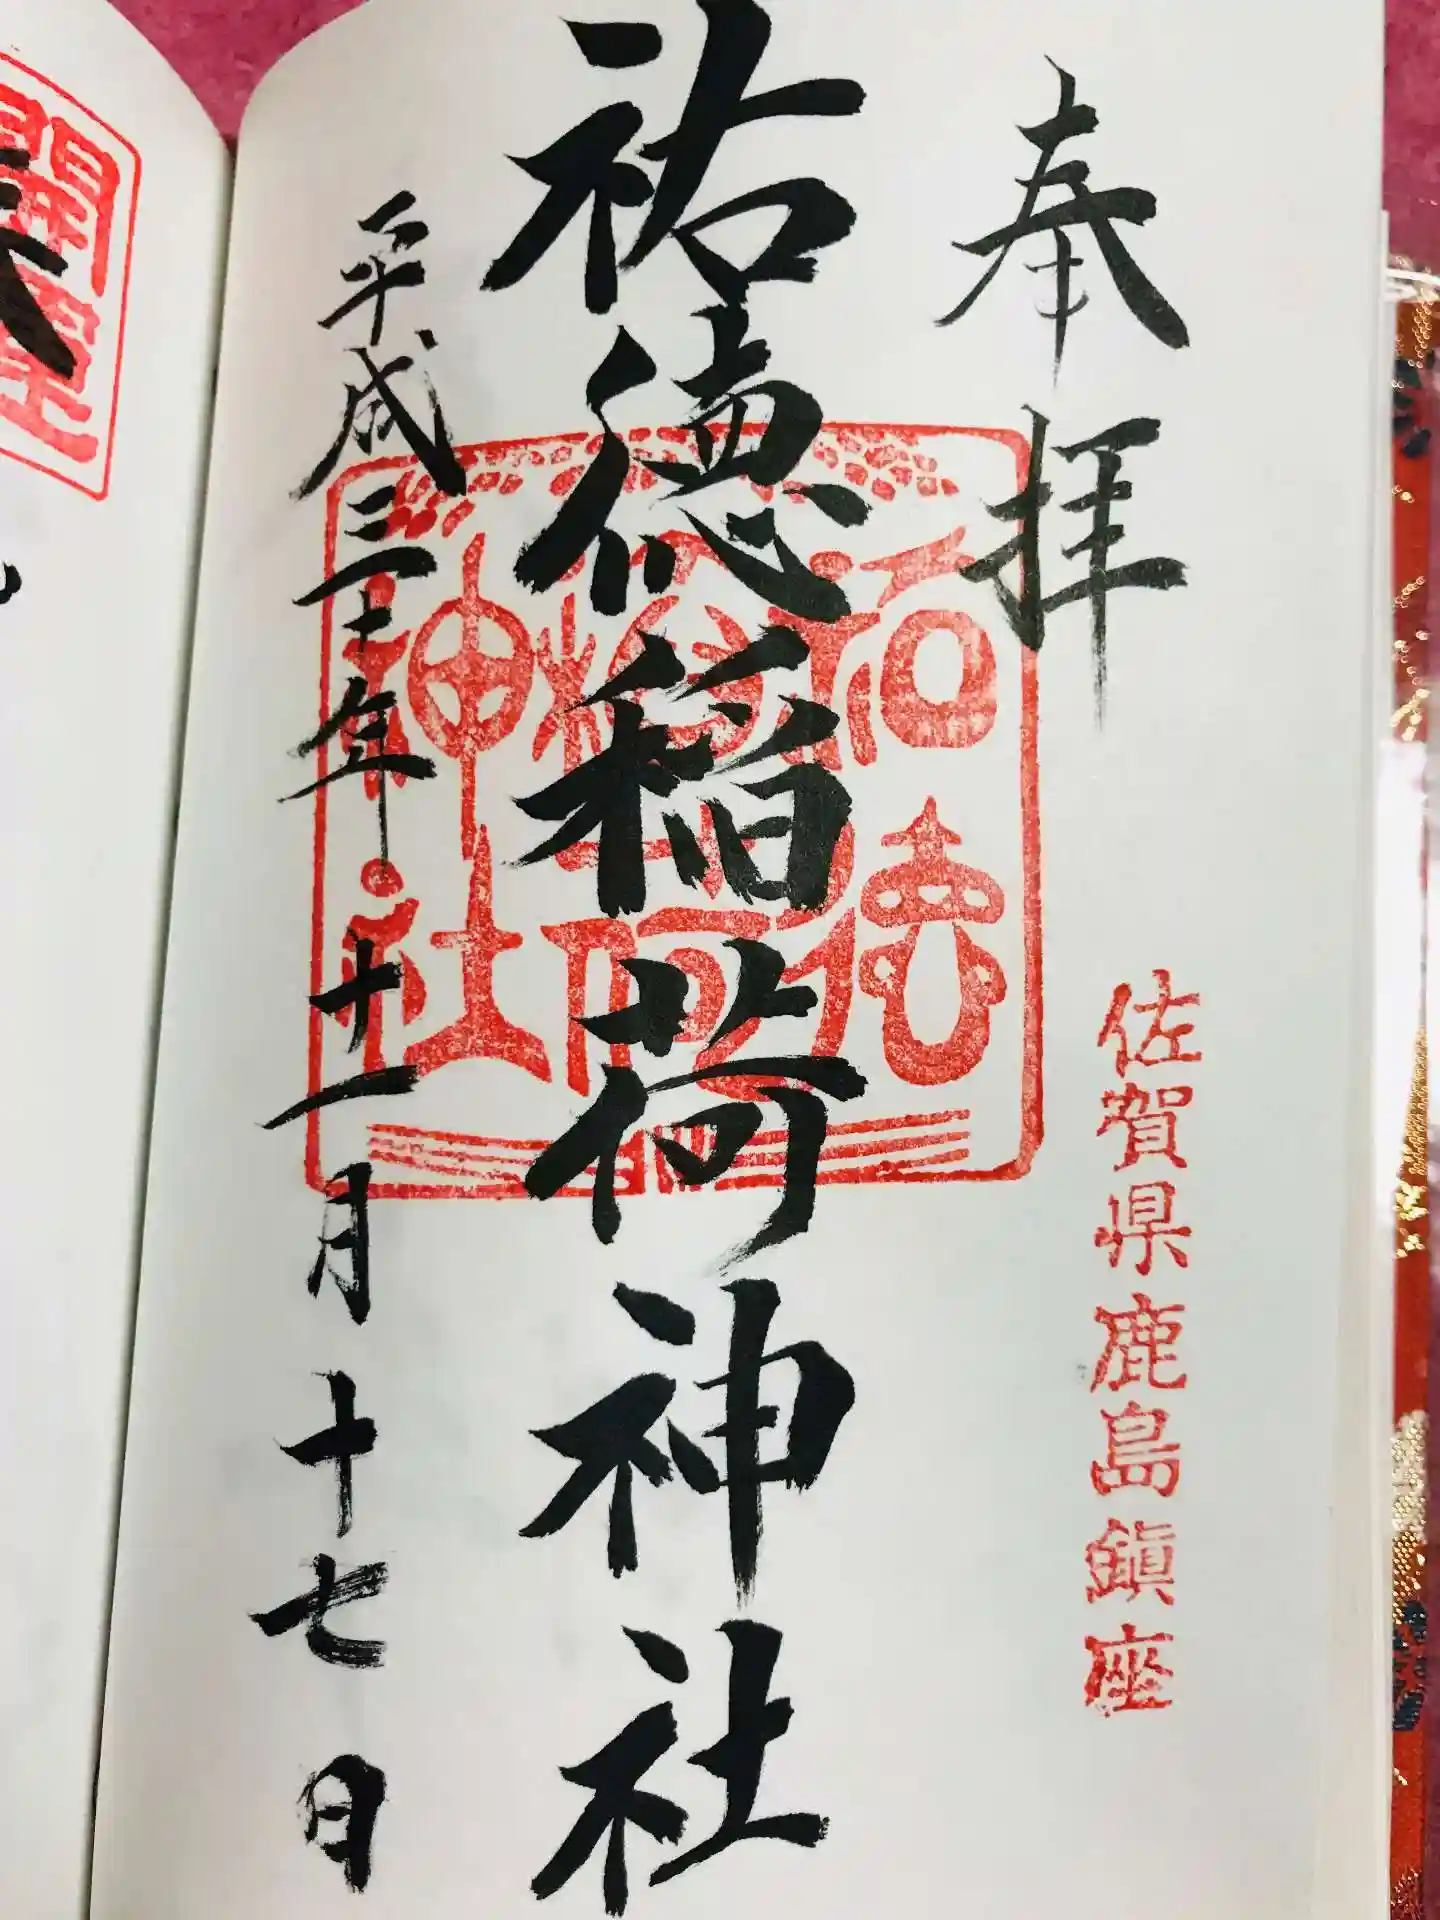 奉拝
佐賀県鹿島鎮座
祐徳稲荷神社
祐徳
稲荷
神社
平成三十年十一月十七日